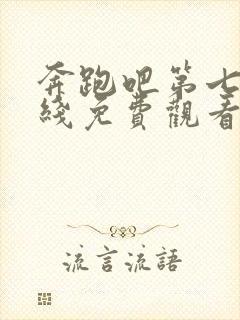 奔跑吧第七
綫免費觀看
流言流語